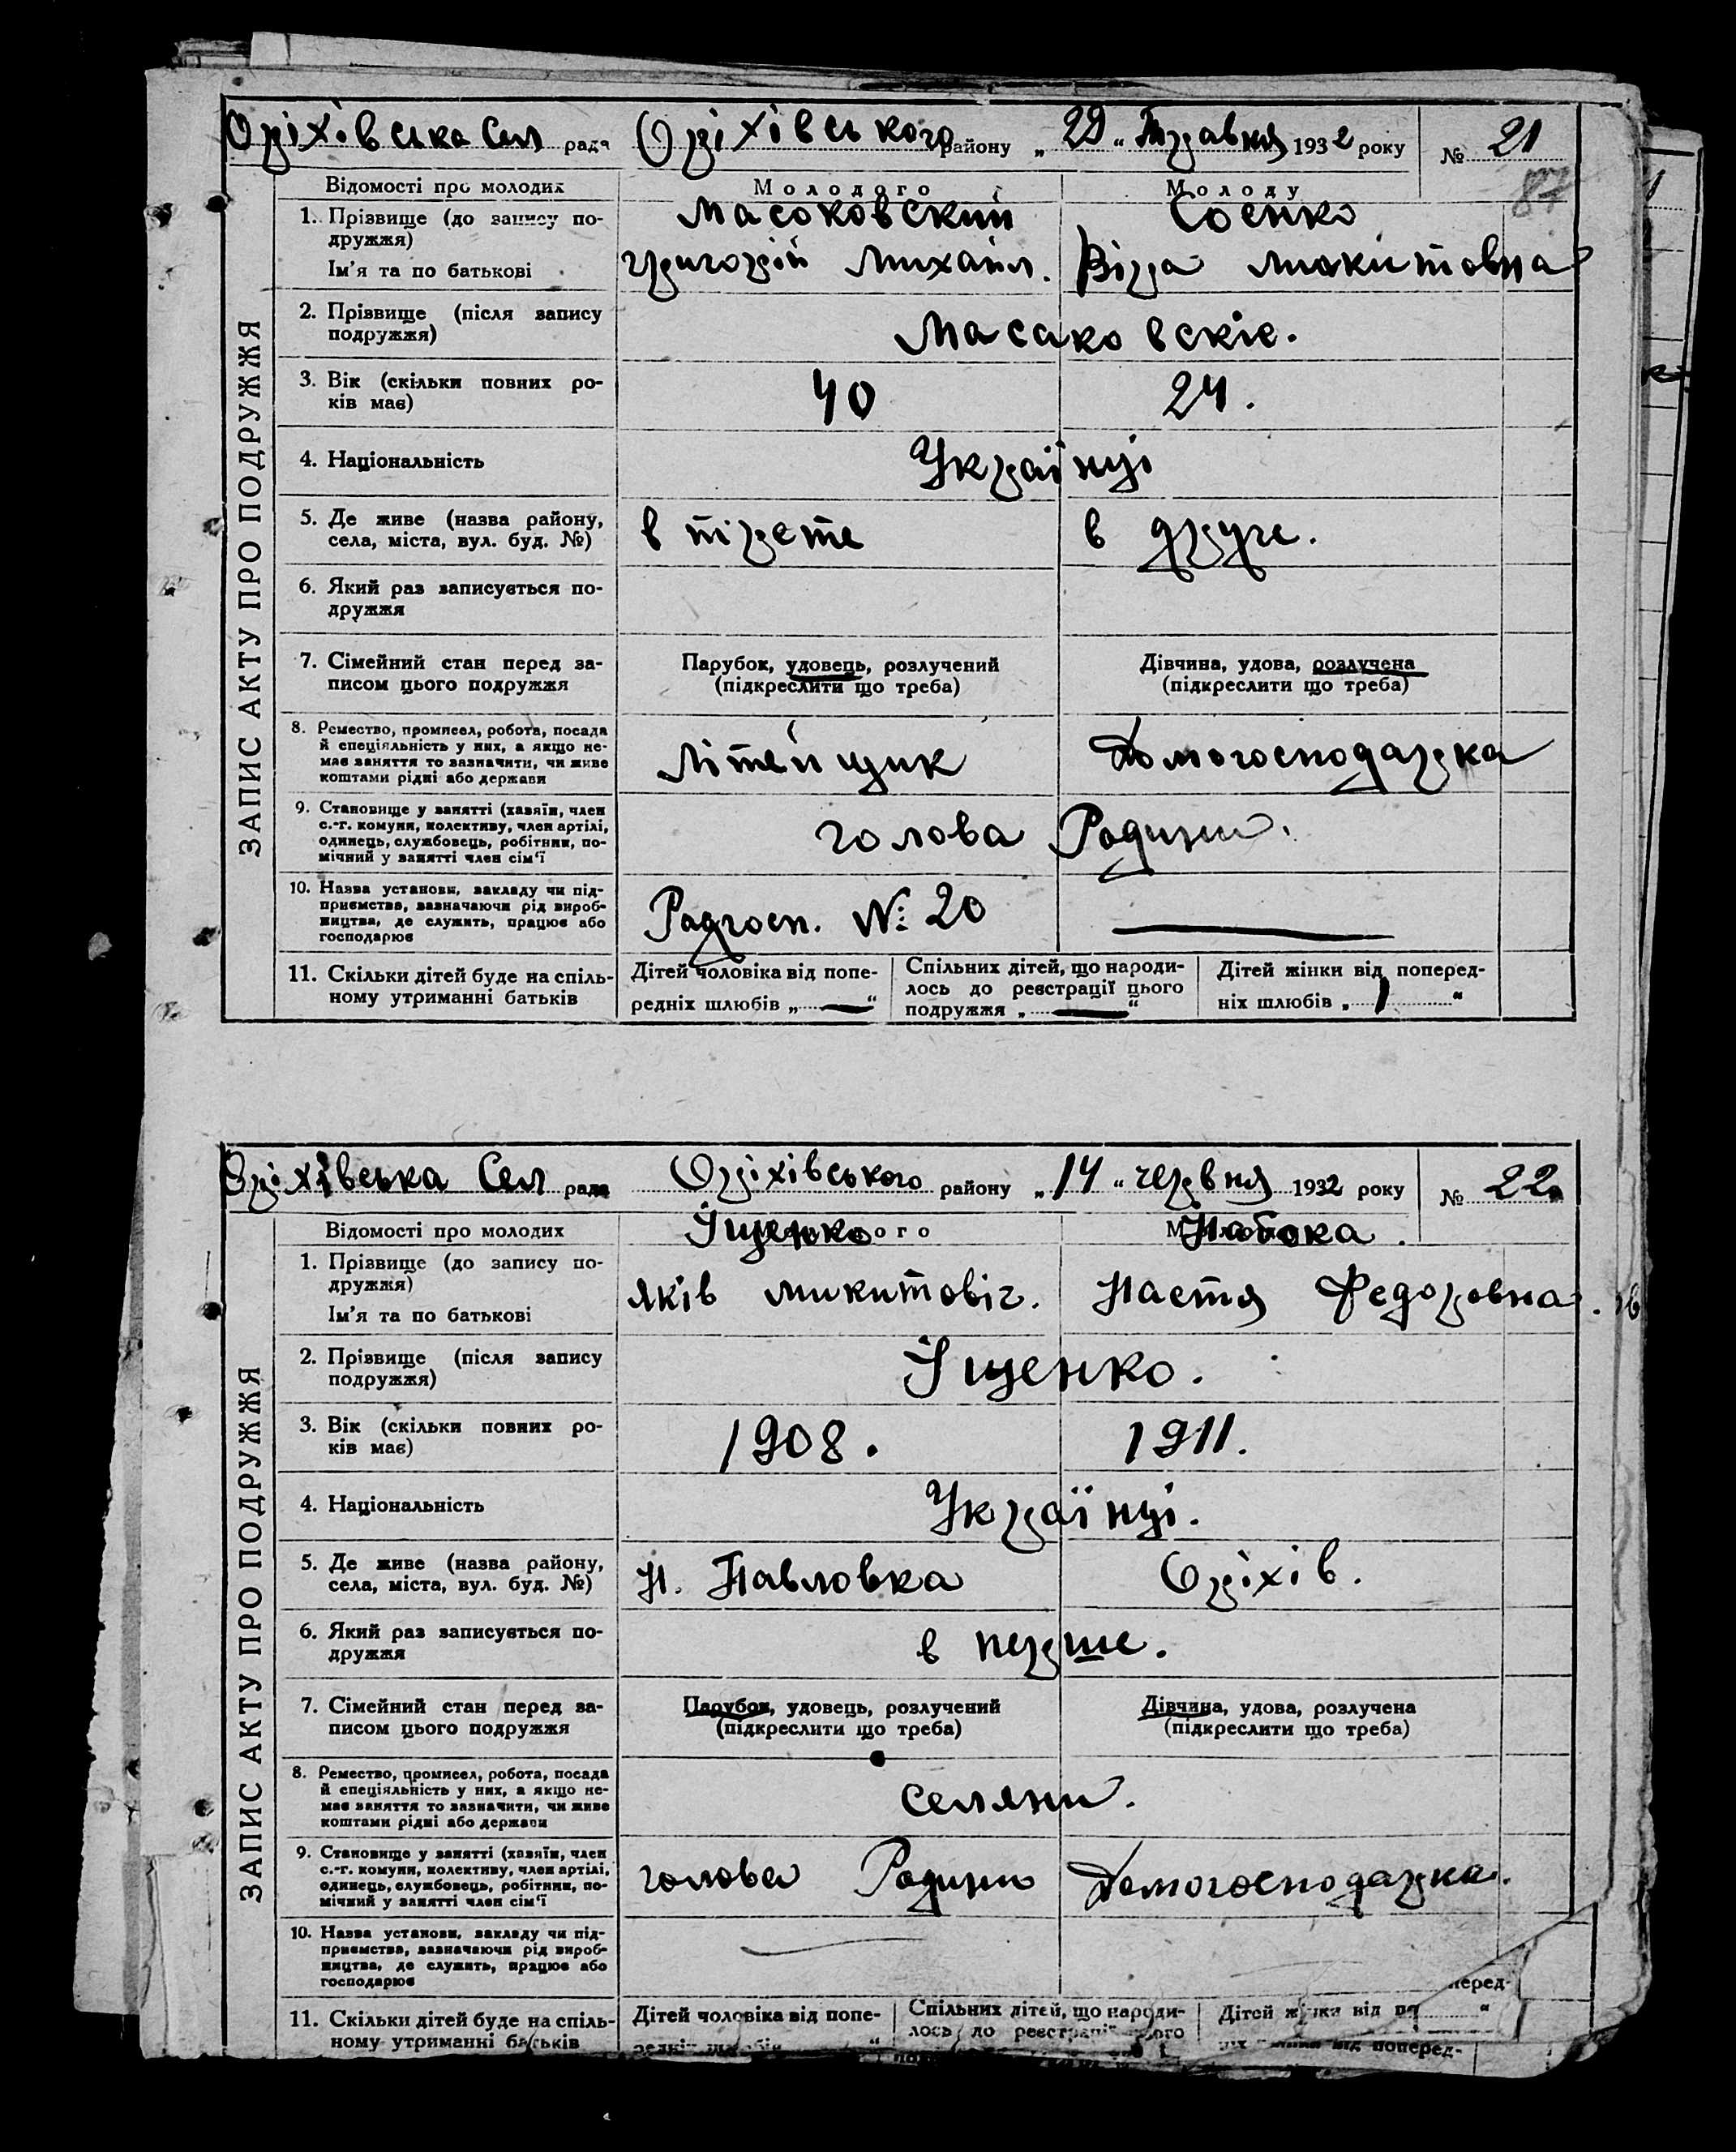 Оріхівська Сел рада Оріхівського району „22" Травня 1932 року № 21
87
ЗАПИС АКТУ ПРО ПОДРУЖЖЯ
Відомості про молодих Молодого Молоду
1. Прізвище (до запису по- Масоковский Соенко
дружжя)
Ім'я та по батькові григорій Михайл. Віра микитовна
2. Прізвище (після запису Масаковскіе.
подружжя)
3. Вік (скільки повних ро- 40 24.
ків має)
4. Національність Українці
5. Де живе (назва району, в трете в друге.
села, міста, вул. буд. №)
6. Який раз записується по-
дружжя
7. Сімейний стан перед за- Парубок, удовець, розлучений Дівчина, удова, розлучена
писом цього подружжя (підкреслити що треба) (підкреслити що треба)
8. Ремество, промисел, робота, посада
й спеціяльність у них, а якщо не- Літейщик Домогосподарка
має заняття то зазначити, чи живе
коштами рідні або держави
9. Становище у занятті (хазяїн, член
с.-г. комуни, колективу, член артілі, голова Родини.
одинець, службовець, робітник, по-
мічний у занятті член сім'ї
10. Назва установи, закладу чи під-
приємства, зазначаючи рід вироб- Радгосп. № 20 —
ництва, де служить, працює або
господарює
11. Скільки дітей буде на спіль- Дітей чоловіка від попе- Спільних дітей, що народи- Дітей жінки від поперед-
ному утриманні батьків редніх шлюбів „—" лось до реєстрації цього ніх шлюбів „1"
подружжя „—"
Оріхівська Сел рада Оріхівського району „14" червня 1932 року № 22
ЗАПИС АКТУ ПРО ПОДРУЖЖЯ
Відомості про молодих Іщенко Набока.
1. Прізвище (до запису по-
дружжя) яків микитовіч. Настя Федоровна.
Ім'я та по батькові
2. Прізвище (після запису Іщенко.
подружжя)
3. Вік (скільки повних ро- 1908. 1911.
ків має)
4. Національність Українці.
5. Де живе (назва району, Н. Павловка Оріхів.
села, міста, вул. буд. №)
6. Який раз записується по- в перше.
дружжя
7. Сімейний стан перед за- Парубок, удовець, розлучений Дівчина, удова, розлучена
писом цього подружжя (підкреслити що треба) (підкреслити що треба)
8. Ремество, промисел, робота, посада
й спеціяльність у них, а якщо не- селяни.
має заняття то зазначити, чи живе
коштами рідні або держави
9. Становище у занятті (хазяїн, член
с.-г. комуни, колективу, член артілі, голова Родини Домогосподарка.
одинець, службовець, робітник, по-
мічний у занятті член сім'ї
10. Назва установи, закладу чи під-
приємства, зазначаючи рід вироб- —
ництва, де служить, працює або
господарює
11. Скільки дітей буде на спіль- Дітей чоловіка від попе- Спільних дітей, що народи- Дітей жінки від
ному утриманні батьків лось до реєстрації поперед-